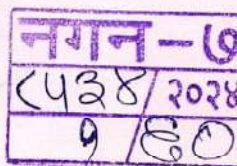 नगन - ७
८५३४ / २०२४
१ / ६०